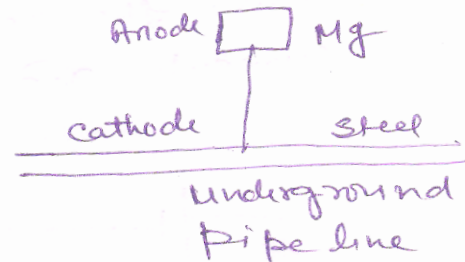 Anode Mg
Cathode Steel
Underground
Pipe line